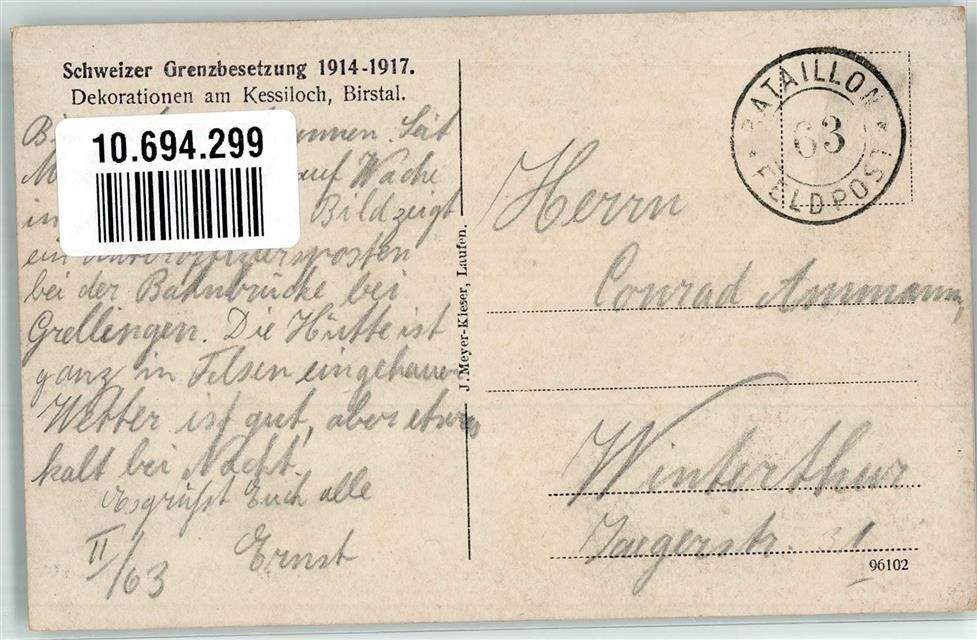 Schweizer Grenzbesetzung 1914-1917.
Dekorationen am Kessiloch, Birstal.
Seit
10.694.299
auf Wache
in Bild zeigt
ein Unteroffiziersposten
bei der Bahnbrücke bei
Grellingen. Die Hütte ist
ganz in Felsen eingehauen
Wetter ist gut, aber etwas
kalt bei Nacht.
Es grüsst Euch alle
Ernst
II/63
J. Meyer-Kieser, Laufen.
BATAILLON
63
* FELDPOST *
Herrn
Conrad Ammann,
Winterthur
Jaegerstr. 31
96102